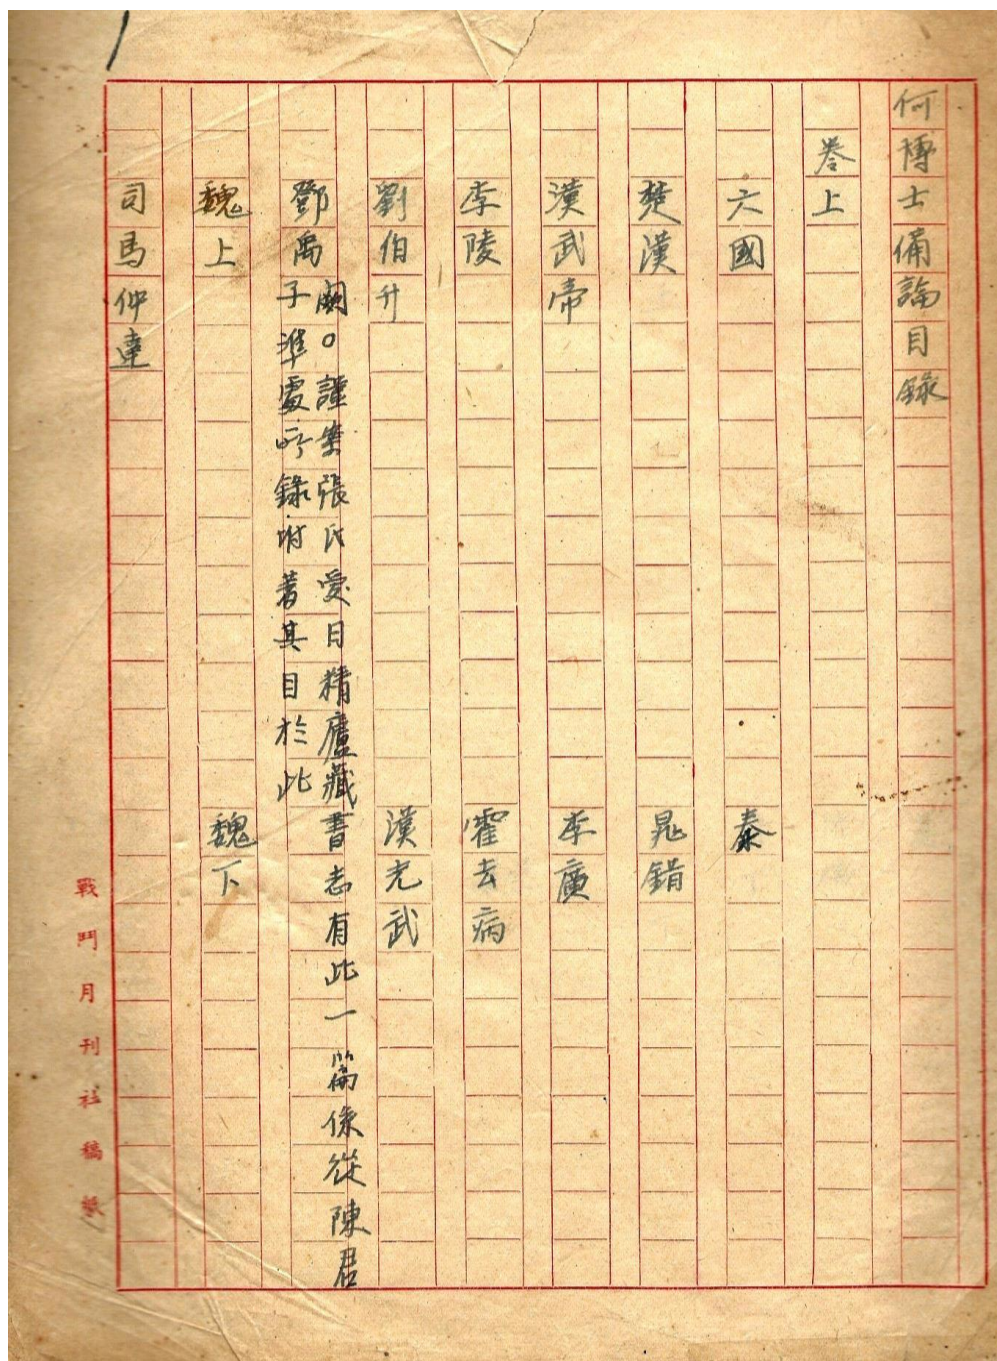 何博士備論目錄
卷上
六國 秦
楚漢 晁錯
漢武帝 李廣
李陵 霍去病
劉伯升 漢光武
鄧禹 闕。謹案張氏愛日精廬藏書志有此一篇係從陳君
子準處所錄附著其目於此
魏上 魏下
司馬仲達
戰鬥月刊社稿紙